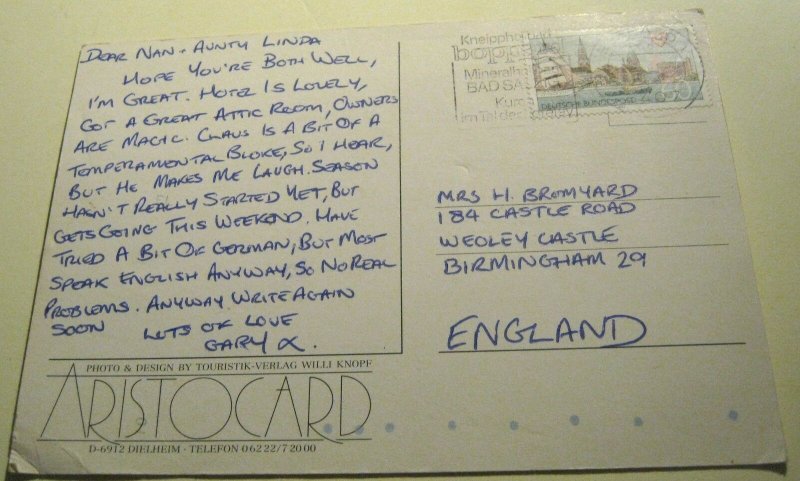 DEAR NAN + AUNTY LINDA
HOPE YOU'RE BOTH WELL,
I'M GREAT. HOTEL IS LOVELY,
GOT A GREAT ATTIC ROOM, OWNERS
ARE MAGIC. CLAUS IS A BIT OF A
TEMPERAMENTAL BLOKE, SO I HEAR,
BUT HE MAKES ME LAUGH. SEASON
HASN'T REALLY STARTED YET, BUT
GETS GOING THIS WEEKEND. HAVE
TRIED A BIT OF GERMAN, BUT MOST
SPEAK ENGLISH ANYWAY, SO NO REAL
PROBLEMS. ANYWAY WRITE AGAIN
SOON LOTS OF LOVE
GARY X.
PHOTO & DESIGN BY TOURISTIK-VERLAG WILLI KNOPF
ARISTOCARD
D-6912 DIELHEIM · TELEFON 06222/72000
boppard
Mineralhe
BAD SA
DEUTSCHE BUNDESPOST
MRS H. BROMYARD
184 CASTLE ROAD
WEOLEY CASTLE
BIRMINGHAM 29
ENGLAND